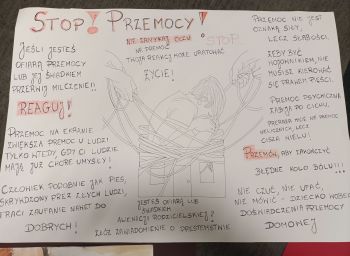 STOP! PRZEMOCY!
JEŚLI JESTEŚ
OFIARĄ PRZEMOCY
LUB JEJ ŚWIADKIEM
PRZERWIJ MILCZENIE!!
REAGUJ!
PRZEMOC NA EKRANIE
ZWIĘKSZA PRZEMOC U LUDZI
TYLKO WTEDY, GDY CI LUDZIE
MAJĄ JUŻ CHORE UMYSŁY!
CZŁOWIEK PODOBNIE JAK PIES,
SKRZYWDZONY PRZEZ ZŁYCH LUDZI,
TRACI ZAUFANIE NAWET DO
DOBRYCH!
NIE ZAMYKAJ OCZU
NA PRZEMOC
TWOJA REAKCJA MOŻE URATOWAĆ
ŻYCIE!
STOP
JESTEŚ OFIARĄ LUB
ŚWIADKIEM
ALIENACJI RODZICIELSKIEJ?
ZŁÓŻ ZAWIADOMIENIE O PRZESTĘPSTWIE
PRZEMOC NIE JEST
OZNAKĄ SIŁY,
LECZ SŁABOŚCI.
ŻEBY BYĆ
WOJOWNIKIEM, NIE
MUSISZ KIEROWAĆ
SIĘ PRAWEM PIĘŚCI.
PRZEMOC PSYCHICZNA
ZABIJA PO CICHU,
NIELICZNYCH, LECZ
CISZA WIELU!
PRZEMÓW, ABY ZAKOŃCZYĆ
BŁĘDNE KOŁO BÓLU!!!
NIE CZUĆ, NIE UFAĆ,
NIE MÓWIĆ - DZIECKO WOBEC
DOŚWIADCZENIA PRZEMOCY
DOMOWEJ